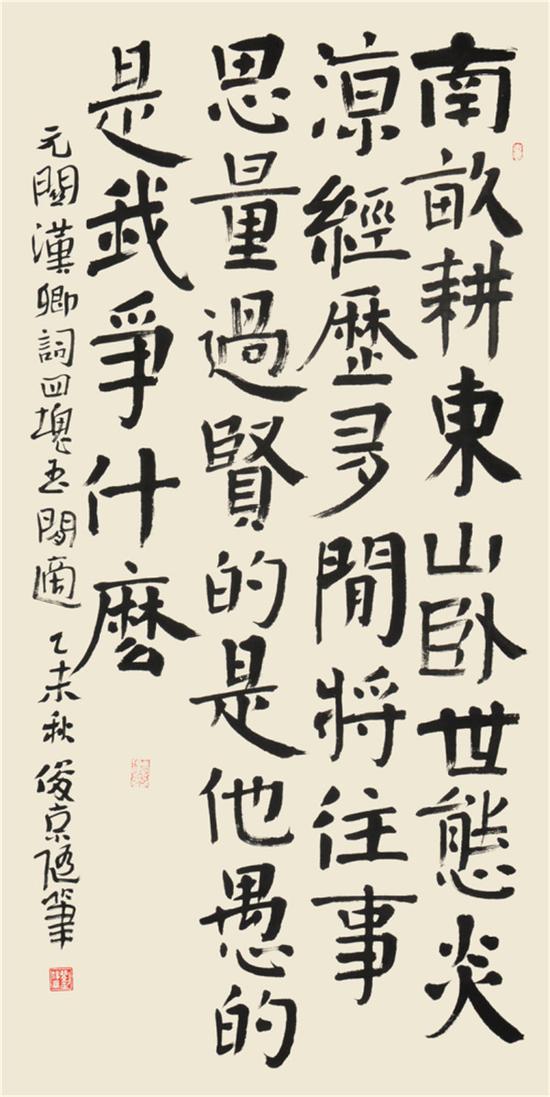 南畝耕東山卧世態炎
涼經歷多閒將往事
思量過賢的是他愚的
是我爭什麽
元關漢卿詞四塊玉閒適 乙未秋 俊京隨筆